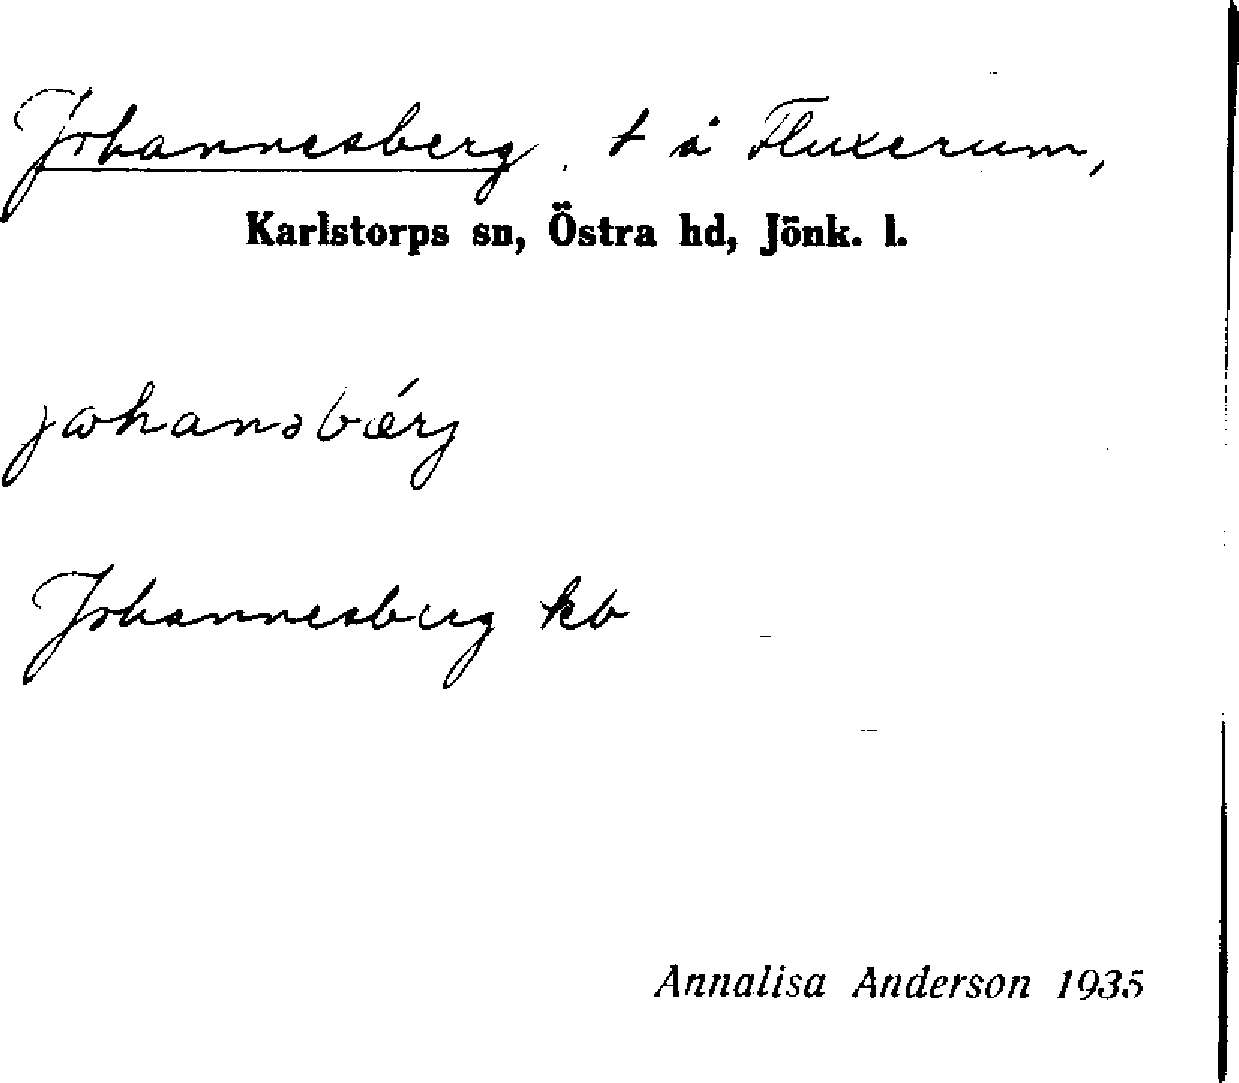 Johannesberg. t å Fluxerum,
Karlstorps sn, Östra hd, Jönk. l.
johansbǽrj
Johannesberg kb
Annalisa Anderson 1935